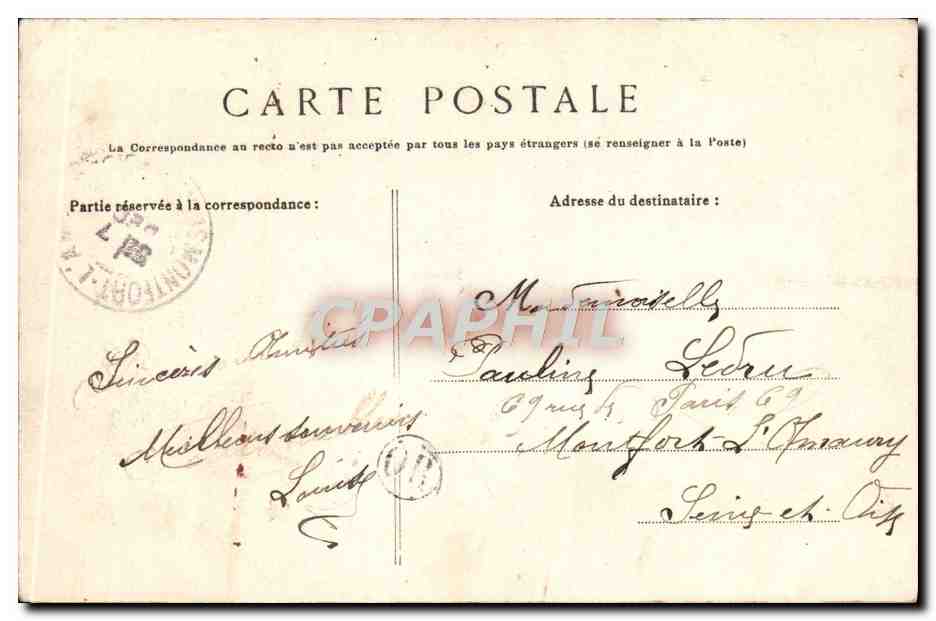 CARTE POSTALE
La Correspondance au recto n'est pas acceptée par tous les pays étrangers (se renseigner à la Poste)
Partie réservée à la correspondance :
Adresse du destinataire :
MONTFORT-L'A
CPAPHIL
Sincères Amitiés
Meilleurs souvenirs
Louise
OR
Mademoiselle
Pauline Ledru
69 rue de Paris 69
Montfort-L'Amaury
Seine-et-Oise